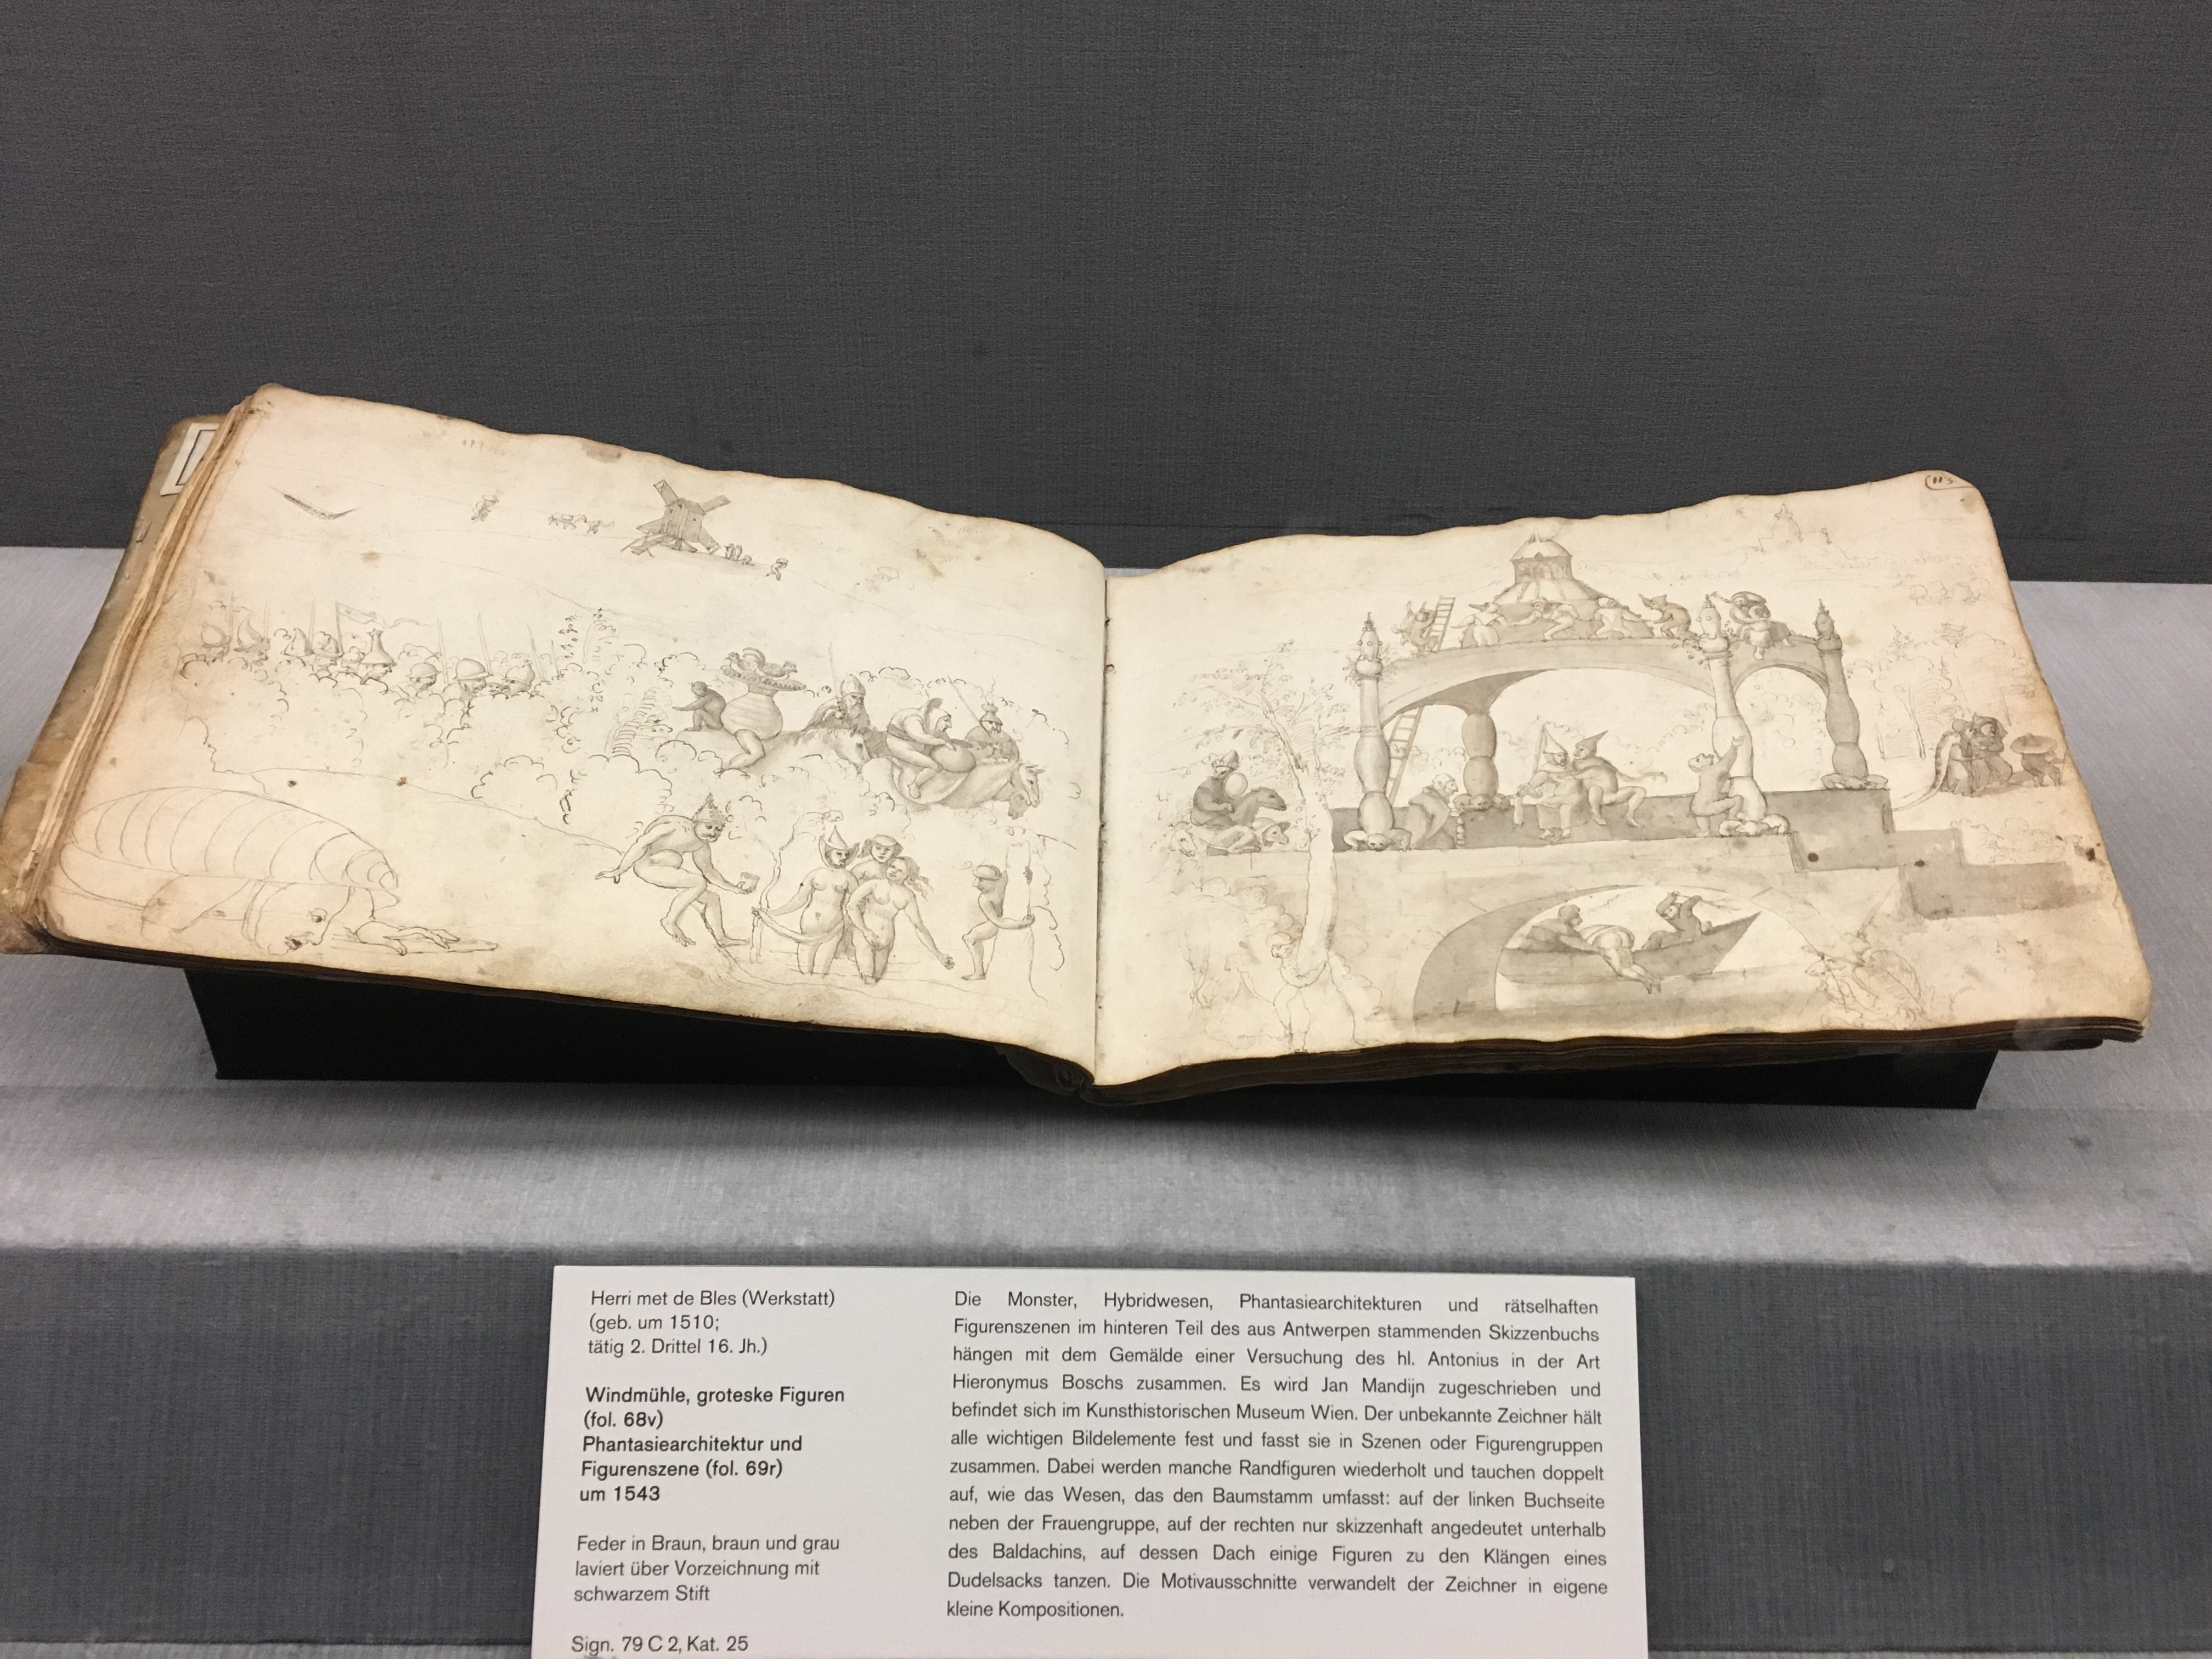 113
Herri met de Bles (Werkstatt)
(geb. um 1510;
tätig 2. Drittel 16. Jh.)
Windmühle, groteske Figuren
(fol. 68v)
Phantasiearchitektur und
Figurenszene (fol. 69r)
um 1543
Feder in Braun, braun und grau
laviert über Vorzeichnung mit
schwarzem Stift
Sign. 79 C 2, Kat. 25
Die Monster, Hybridwesen, Phantasiearchitekturen und rätselhaften
Figurenszenen im hinteren Teil des aus Antwerpen stammenden Skizzenbuchs
hängen mit dem Gemälde einer Versuchung des hl. Antonius in der Art
Hieronymus Boschs zusammen. Es wird Jan Mandijn zugeschrieben und
befindet sich im Kunsthistorischen Museum Wien. Der unbekannte Zeichner hält
alle wichtigen Bildelemente fest und fasst sie in Szenen oder Figurengruppen
zusammen. Dabei werden manche Randfiguren wiederholt und tauchen doppelt
auf, wie das Wesen, das den Baumstamm umfasst: auf der linken Buchseite
neben der Frauengruppe, auf der rechten nur skizzenhaft angedeutet unterhalb
des Baldachins, auf dessen Dach einige Figuren zu den Klängen eines
Dudelsacks tanzen. Die Motivausschnitte verwandelt der Zeichner in eigene
kleine Kompositionen.